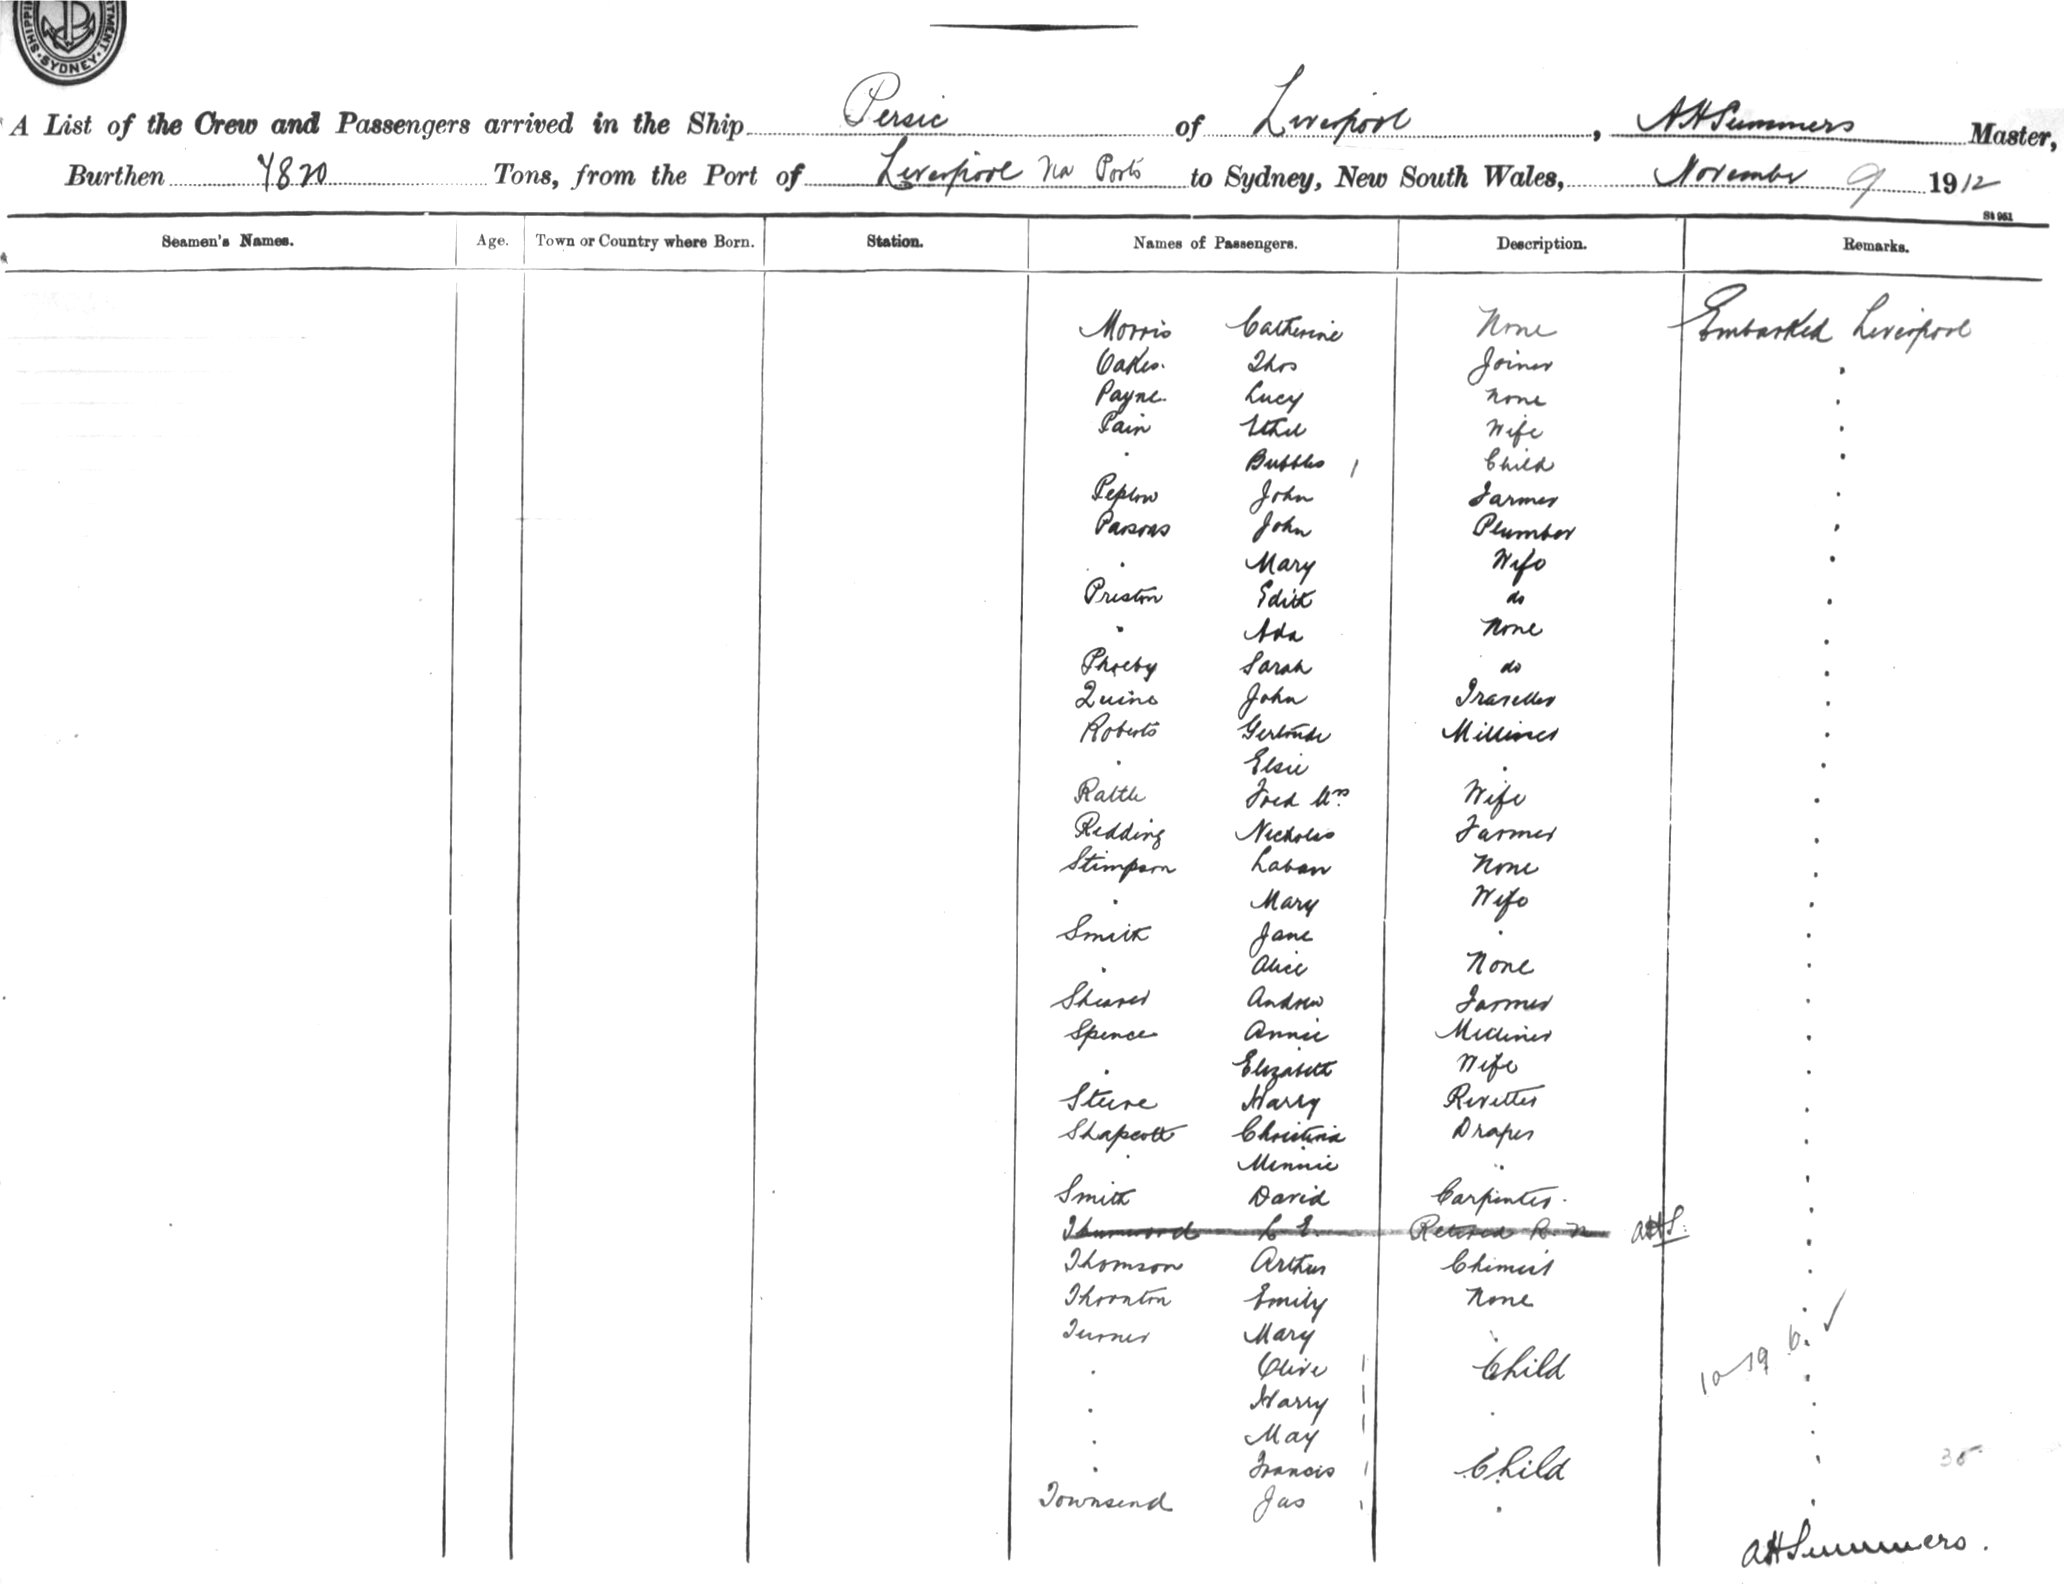 SHIPPING DEPARTMENT. SYDNEY.
A List of the Crew and Passengers arrived in the Ship Persic of Liverpool, AHSummers Master,
Burthen 7820 Tons, from the Port of Liverpool via Ports to Sydney, New South Wales, November 9 1912
St 951
Seamen's Names. Age. Town or Country where Born. Station. Names of Passengers. Description. Remarks.
Morris Catherine None Embarked Liverpool
Oakes. Thos Joiner "
Payne. Lucy None "
Pain Ethel Wife "
" Bubbles 1 Child "
Peplow John Farmer "
Parsons John Plumber "
" Mary Wife "
Preston Edith do "
" Ada None "
Phoeby Sarah do "
Quine John Traveller "
Roberts Gertrude Milliner "
" Elsie " "
Rattle Fred Mrs Wife "
Redding Nicholas Farmer "
Stimpson Laban None "
" Mary Wife "
Smith Jane " "
" Alice None "
Shearer Andrew Farmer "
Spence Annie Milliner "
" Elizabeth Wife "
Steere Harry Rivetter "
Shapcott Christina Draper "
" Minnie " "
Smith David Carpenter. "
L E. Retired R. N AHS. "
Thomson Arthur Chemist "
Thornton Emily None "
Turner Mary " "
" Olive 1 Child "
" Harry 1 "
" May 1 " "
" Francis 1 Child " 35
Townsend Jas 1 " "
AHSummers.